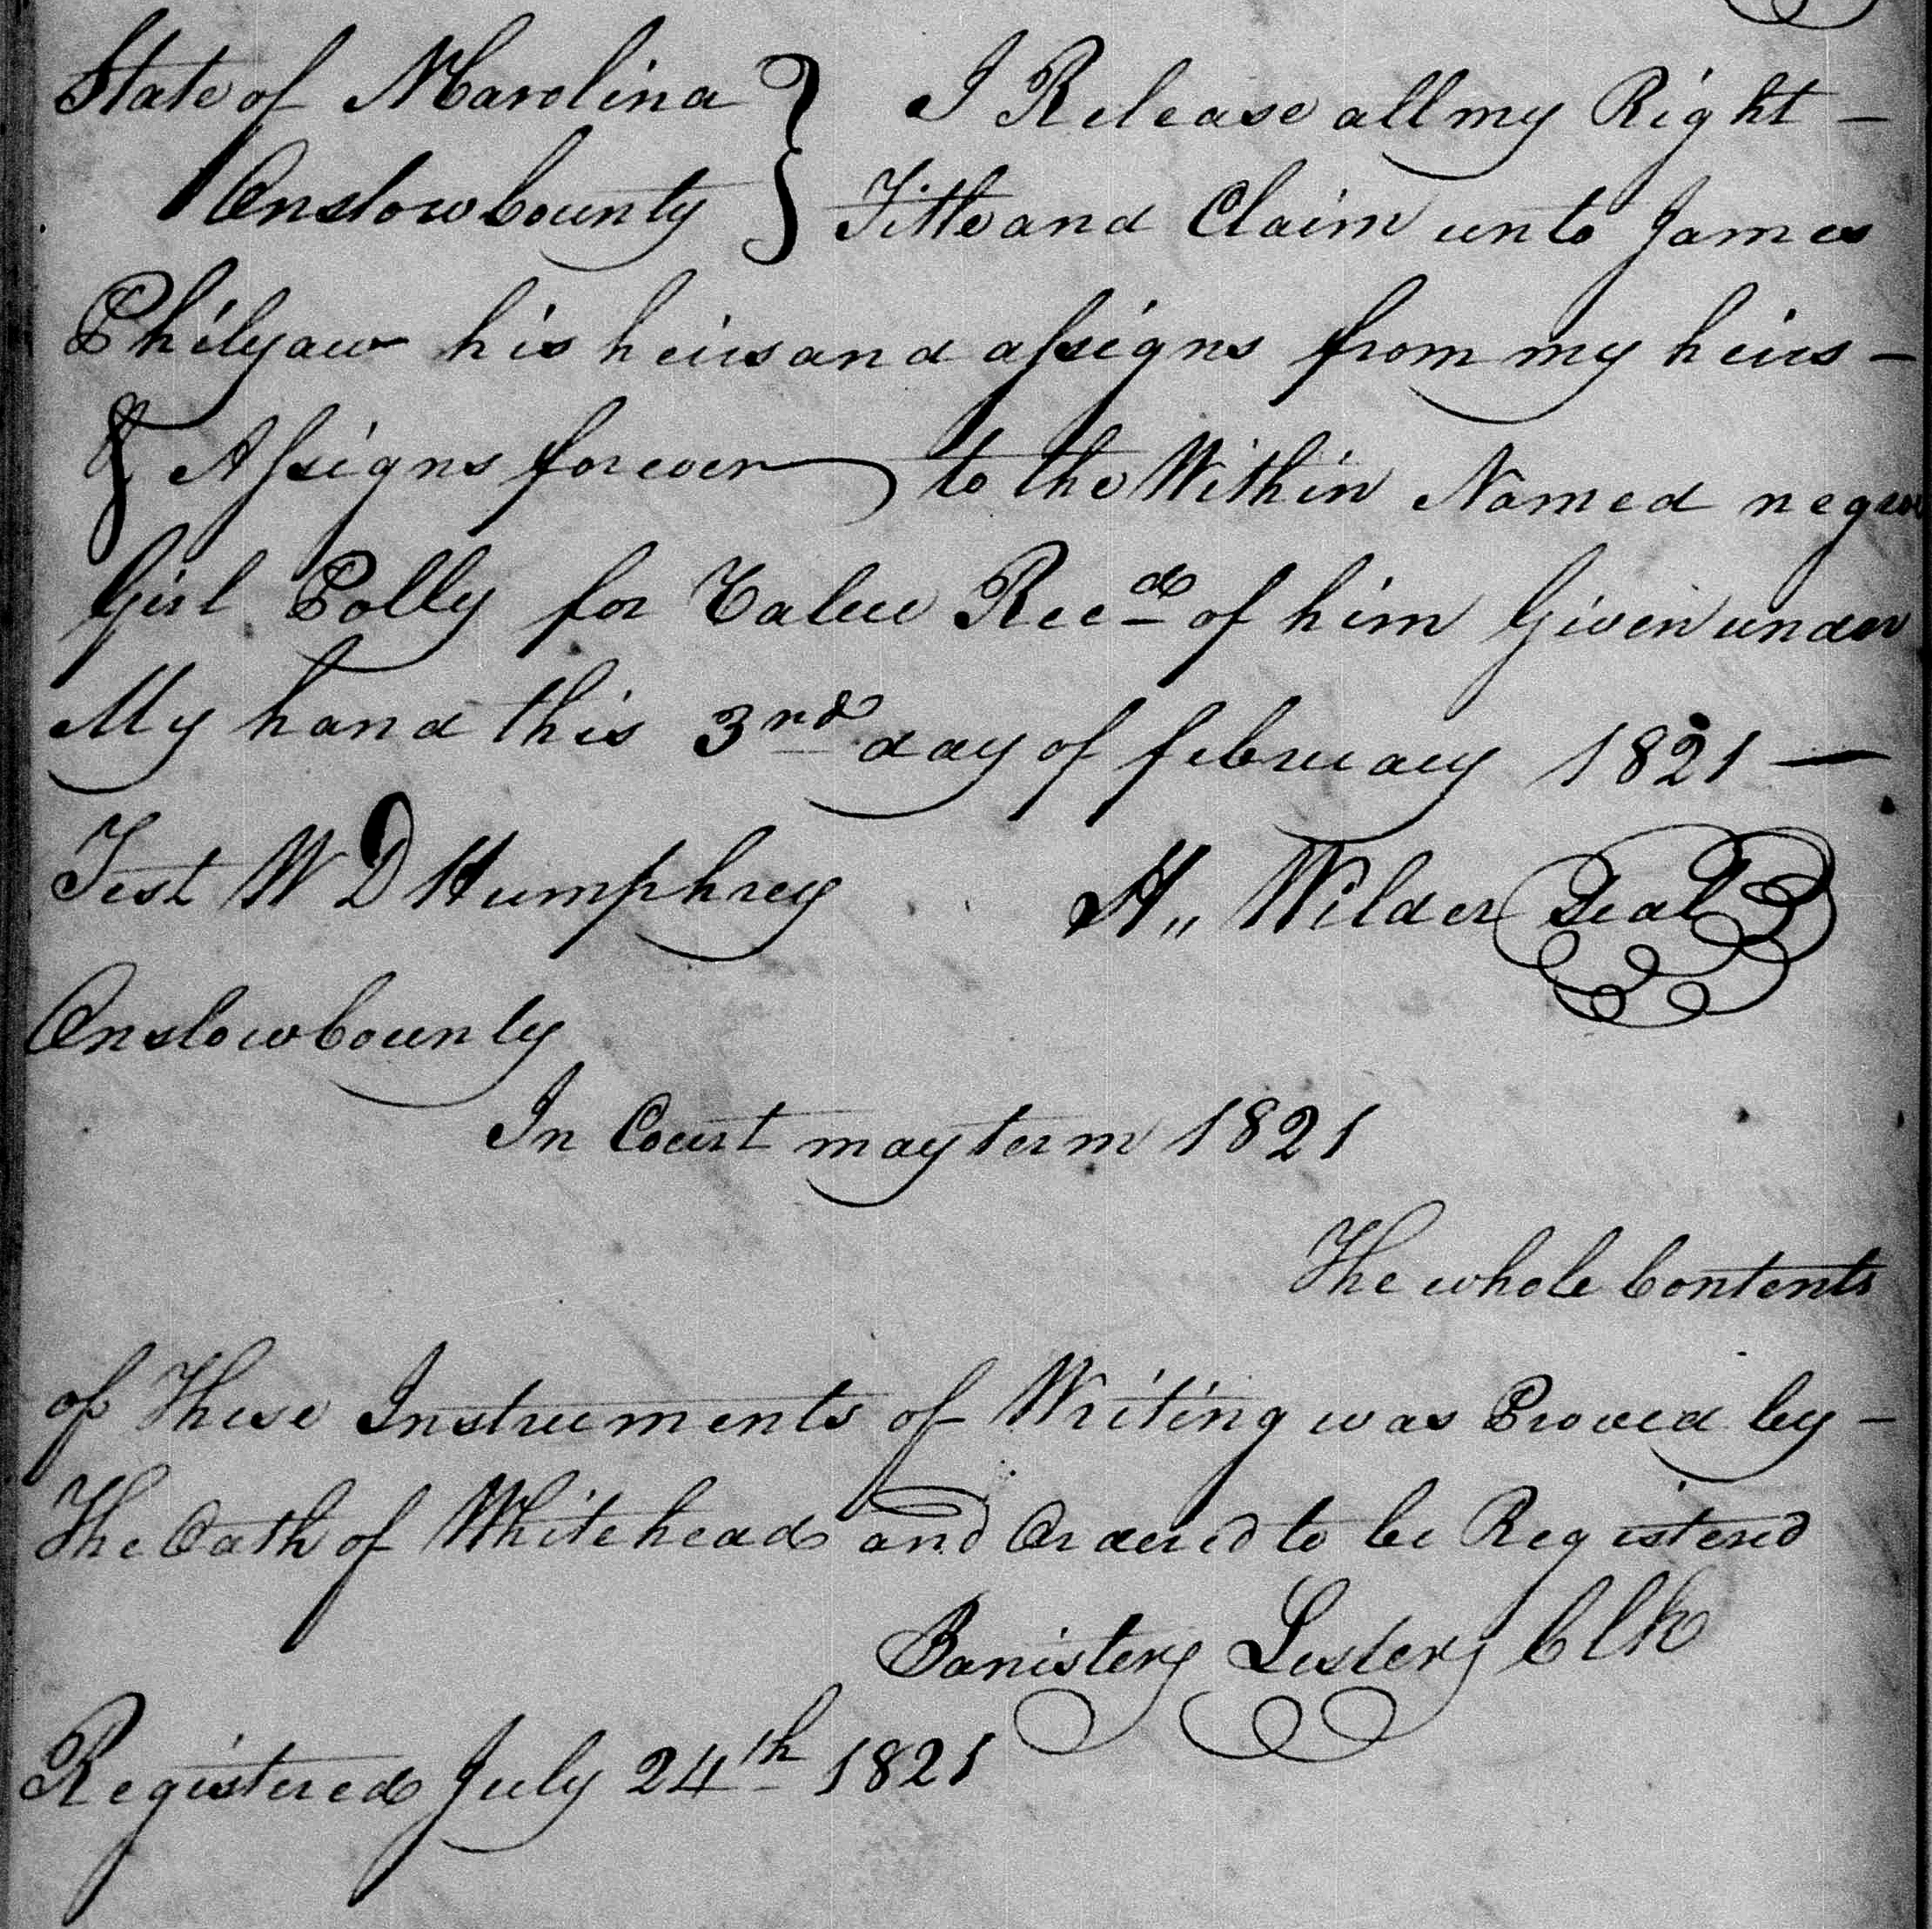 State of NCarolina } I Release all my Right –
Onslow County } Title and Claim unto James
Philyaw his heirs and assigns from my heirs –
& Assigns forever to the Within Named negro
Girl Polly for Value Recd of him Given under
My hand this 3rd day of february 1821 –
Test W D Humphrey H,, Wilder Seal
Onslow County
In Court may term 1821
The whole Contents
of These Instruments of Writing was Proved by –
The Oath of Whitehead and Ordered to be Registered
Banister Lester Clk
Registered July 24th 1821